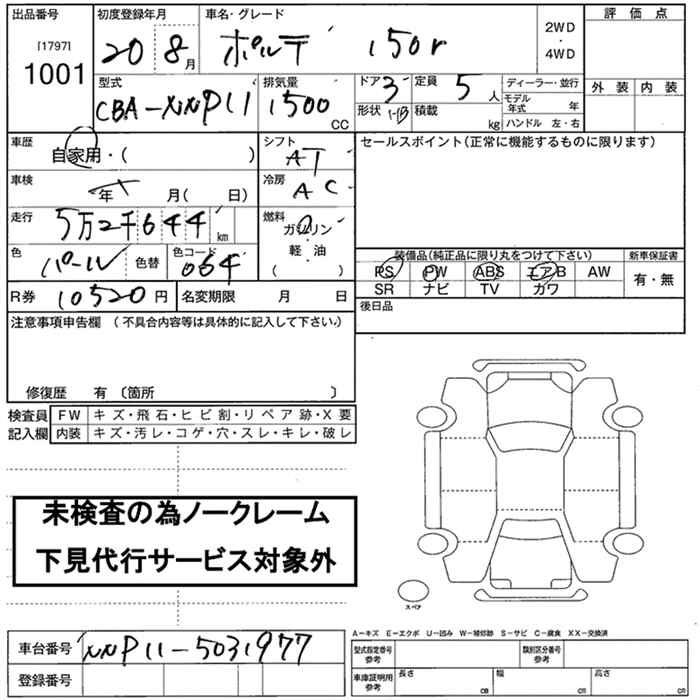 出品番号 初度登録年月 車名・グレード 評価点
[1797] 1001 20 8月 ポルテ 150r 2WD・4WD
外装 内装
型式 排気量 ドア 3 定員 5人 ディーラー・並行
CBA-NNP11 1500cc 形状 積載 kg モデル年式 年
ハンドル 左・右
車歴 自家用・( ) シフト AT セールスポイント(正常に機能するものに限ります)
車検 年 月( 日) 冷房 AC
走行 5万2千644km 燃料 ガソリン・軽油 ( )
色 パール 色替 色コード 064
装備品(純正品に限り丸をつけて下さい) 新車保証書
PS PW ABS エアB AW 有・無
SR ナビ TV カワ
R券 10520円 名変期限 月 日 後日品
注意事項申告欄(不具合内容等は具体的に記入して下さい。)
修復歴 有〔箇所 〕
検査員 FW キズ・飛石・ヒビ割・リペア跡・X要
記入欄 内装 キズ・汚レ・コゲ・穴・スレ・キレ・破レ
未検査の為ノークレーム
下見代行サービス対象外
スペア
A-キズ E-エクボ U-凹み W-補修跡 S-サビ C-腐食 XX-交換済
車台番号 NNP11-5031977 型式指定番号 参考 類別区分番号 参考
登録番号 車庫証明用 参考 長さ cm 幅 cm 高さ cm